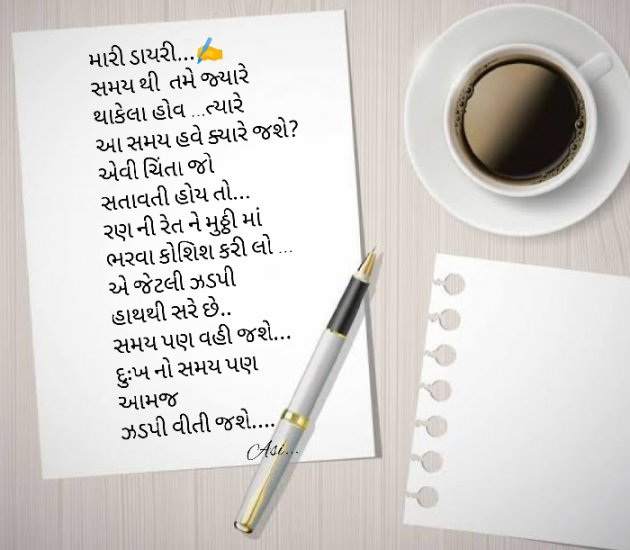 મારી ડાયરી...✍️
સમય થી  તમે જ્યારે
થાકેલા હોવ ...ત્યારે
આ સમય હવે ક્યારે જશે?
એવી ચિંતા જો
સતાવતી હોય તો...
રણ ની રેત ને મુઠ્ઠી માં
ભરવા કોશિશ કરી લો ...
એ જેટલી ઝડપી
હાથથી સરે છે..
સમય પણ વહી જશે...
દુઃખ નો સમય પણ
આમજ
ઝડપી વીતી જશે....
Asi...